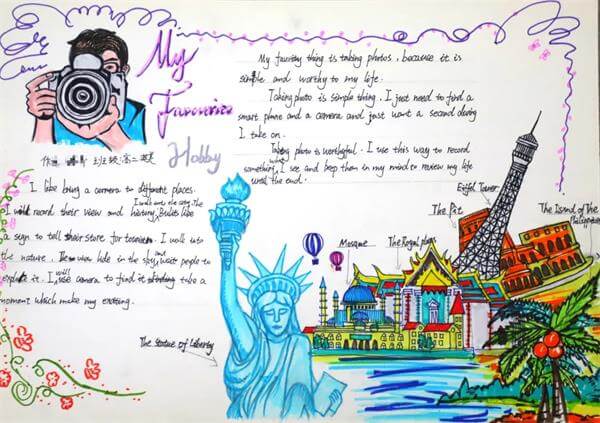 My
Favourite
Hobby
My favoritey thing is taking photos, because it is
simple and worthy to my life.
Taking photo is simple thing. I just need to find a
smart phone and a camera and just want a second during
I take on.
Taking photo is worthyful. I use this way to record
something I see and keep them in my mind to review my life
until the end.
班级:高二
I like bring a camera to different places.
I will record their view and history,
a sign to tell their store for I walk into
the nature. The view hide in the sky, and want people to
explore it. I will use camera to find it take a
moment which make my exciting.
The Statue of Liberty
Mosque
The Royal place
The Pit
Eiffel Tower
The Island of The
Philippines